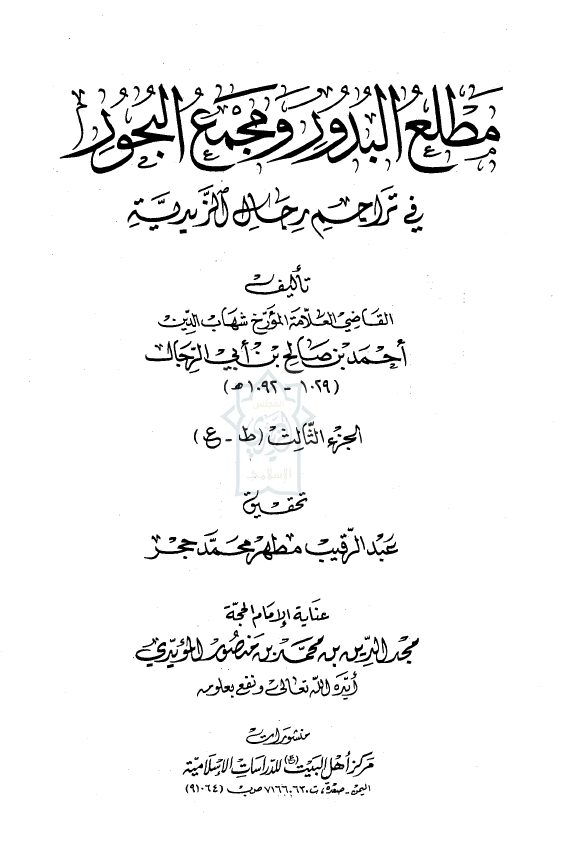 مَطْلَعُ البُدُورِ وَمَجْمَعُ البُحُورِ
في تراجم رجال الزيدية
تأليف
القاضي العلامة المؤرخ شهاب الدين
أحمد بن صالح بن أبي الرجال
(١٠٢٩ - ١٠٩٢ هـ)
الجزء الثالث (ط - ع)
تحقيق
عبد الرقيب مطهر محمد حجر
عناية الإمام الحجة
مجد الدين بن محمد بن منصور المؤيدي
أيده الله تعالى ونفع بعلومه
منشورات
مركز أهل البيت (ع) للدراسات الإسلامية
اليمن - صعدة، ت ٧١٦٦٠٦٣٠ ص ب (٩١٠٦٤)
المجلس
الزيدي
الإسلامي